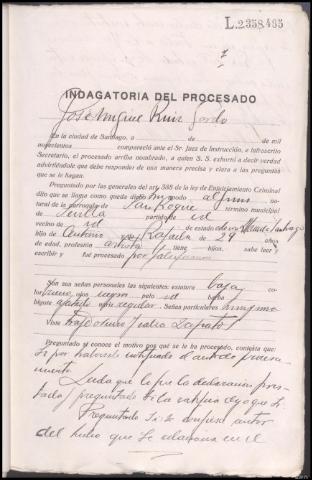 L.2358495
7
INDAGATORIA DEL PROCESADO
José Miguel Ruiz Gordo
En la ciudad de Santiago, a de de mil
novecientos compareció ante el Sr. Juez de Instrucción, e infrascrito
Secretario, el procesado arriba nominado, a quien S. S. exhortó a decir verdad
advirtiéndole que debe responder de una manera precisa y clara a las preguntas
que se le hagan.
Preguntado por las generales del art. 388 de la ley de Enjuiciamiento Criminal
dijo que se llama como queda dicho
tural de la parroquia de San Roque término municipal
de Sevilla partido de id
vecino de id de estado Santiago
de Antonio y de Rafaela de 29 años
de edad, profesión artista tiene hijos, sabe leer y
escribir y fué procesado por
Son sus señas personales las siguientes: estatura baja
pelo id barba
bigote afeitado regular. Señas particulares ninguna
Viste traje oscuro
Preguntado y conoce el motivo por qué se le procesa, contesta que:
Si por habersele notificado el auto de procesa-
miento.
Leida que le fué la declaración pres-
tada y preguntado si la ratifica dijo que si.
Preguntado Si se confiesa autor
del hecho que se relaciona en el